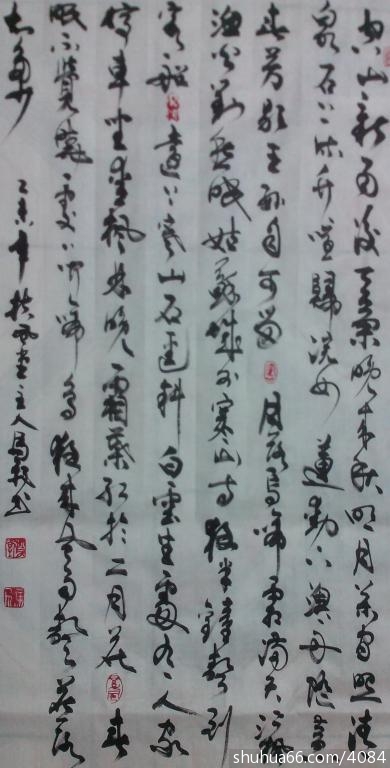 空山新雨後天氣晚来秋明月松間照清
泉石上流竹喧歸浣女蓮動下漁舟隨意
春芳歇王孫自可留 月落烏啼霜滿天江楓
漁火對愁眠姑蘇城外寒山寺夜半鐘聲到
客船 遠上寒山石徑斜白雲生處有人家
停車坐愛楓林晚霜葉紅於二月花 春
眠不覺曉處〻聞啼鳥夜来風雨聲花落
知多少 乙未年扶風堂主人馬書
shuhua66.com/4084